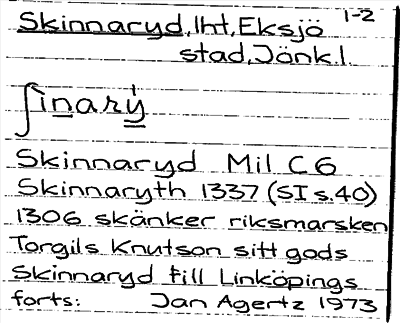 Skinnaryd, lht, Eksjö 1-2
stad, Jönk.l.
ʃinarẏ
Skinnaryd Mil C6
Skinnaryth 1337 (SI s.40)
1306 skänker riksmarsken
Torgils Knutson sitt gods
Skinnaryd till Linköpings
forts: Jan Agertz 1973